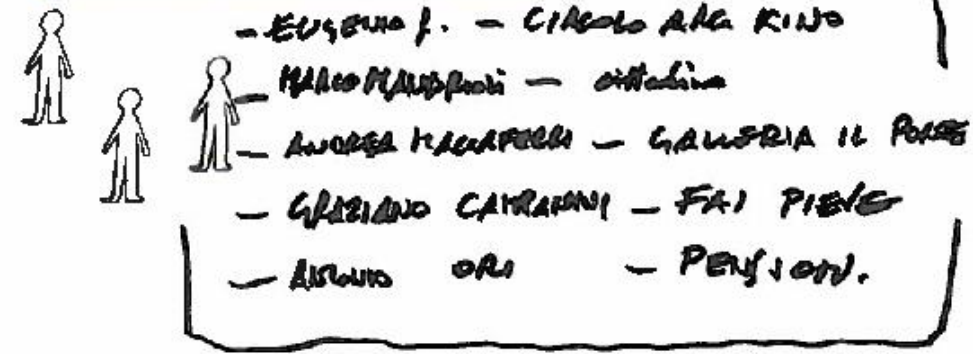 - EUGENIO f. - CIRCOLO ARCI KINO
- MARCO - cittadino
- ANDREA MACCAFERRI - GALLERIA IL PONTE
- GRAZIANO CAMPANINI - FAI PIEVE
- ANTONIO ORI - PENSION.